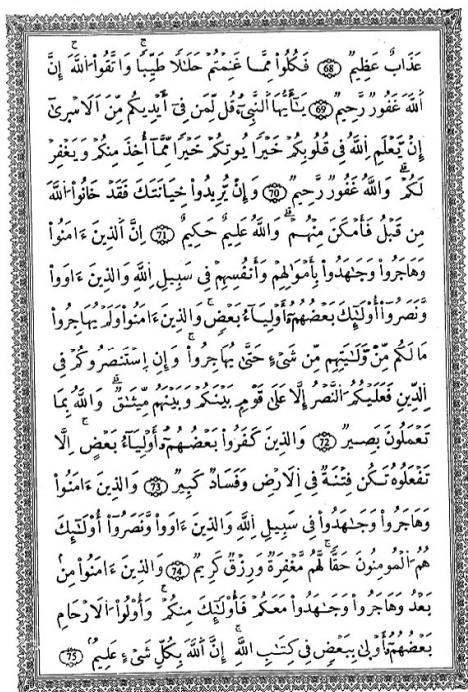 عَذَابٌ عَظِيمٌ 68 فَكُلُوا۟ مِمَّا غَنِمْتُمْ حَلَٰلًا طَيِّبًا وَاتَّقُوا۟ اللَّهَ إِنَّ
اللَّهَ غَفُورٌ رَّحِيمٌ 69 يَٰأَيُّهَا النَّبِيُّ قُل لِّمَن فِي أَيْدِيكُم مِّنَ الَاسْرَىٰ
إِنْ يَّعْلَمِ اللَّهُ فِي قُلُوبِكُمْ خَيْرًا يُوتِكُمْ خَيْرًا مِّمَّا أُخِذَ مِنكُمْ وَيَغْفِرْ
لَكُمْ وَاللَّهُ غَفُورٌ رَّحِيمٌ 70 وَإِنْ يُّرِيدُوا۟ خِيَانَتَكَ فَقَدْ خَانُوا۟ اللَّهَ
مِن قَبْلُ فَأَمْكَنَ مِنْهُمْ وَاللَّهُ عَلِيمٌ حَكِيمٌ 71 إِنَّ الَّذِينَ ءَامَنُوا۟
وَهَاجَرُوا۟ وَجَٰهَدُوا۟ بِأَمْوَٰلِهِمْ وَأَنفُسِهِمْ فِي سَبِيلِ اللَّهِ وَالَّذِينَ ءَاوَوا۟
وَّنَصَرُوا۟ أُوْلَٰئِكَ بَعْضُهُمُۥ أَوْلِيَاءُ بَعْضٍ وَالَّذِينَ ءَامَنُوا۟ وَلَمْ يُهَاجِرُوا۟
مَا لَكُم مِّنْ وَّلَٰيَتِهِم مِّن شَيْءٍ حَتَّىٰ يُهَاجِرُوا۟ وَإِنِ اسْتَنصَرُوكُمْ فِي
الدِّينِ فَعَلَيْكُمُ النَّصْرُ إِلَّا عَلَىٰ قَوْمٍ بَيْنَكُمْ وَبَيْنَهُم مِّيثَٰقٌ وَاللَّهُ بِمَا
تَعْمَلُونَ بَصِيرٌ 72 وَالَّذِينَ كَفَرُوا۟ بَعْضُهُمُۥ أَوْلِيَاءُ بَعْضٍ اِلَّا
تَفْعَلُوهُ تَكُن فِتْنَةٌ فِي اِلَارْضِ وَفَسَادٌ كَبِيرٌ 73 وَالَّذِينَ ءَامَنُوا۟
وَهَاجَرُوا۟ وَجَٰهَدُوا۟ فِي سَبِيلِ اللَّهِ وَالَّذِينَ ءَاوَوا۟ وَّنَصَرُوا۟ أُوْلَٰئِكَ
هُمُ الْمُومِنُونَ حَقًّا لَّهُم مَّغْفِرَةٌ وَرِزْقٌ كَرِيمٌ 74 وَالَّذِينَ ءَامَنُوا۟ مِنۢ
بَعْدُ وَهَاجَرُوا۟ وَجَٰهَدُوا۟ مَعَكُمْ فَأُوْلَٰئِكَ مِنكُمْ وَأُوْلُوا۟ الَارْحَامِ
بَعْضُهُمُۥ أَوْلَىٰ بِبَعْضٍ فِي كِتَٰبِ اللَّهِ إِنَّ اللَّهَ بِكُلِّ شَيْءٍ عَلِيمٌ 75